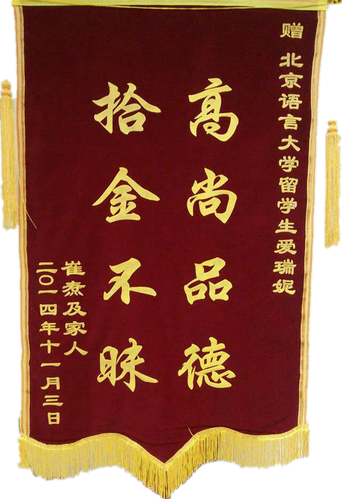 赠 北京语言大学留学生爱瑞妮
高尚品德
拾金不昧
崔焘及家人
二〇一四年十一月三日